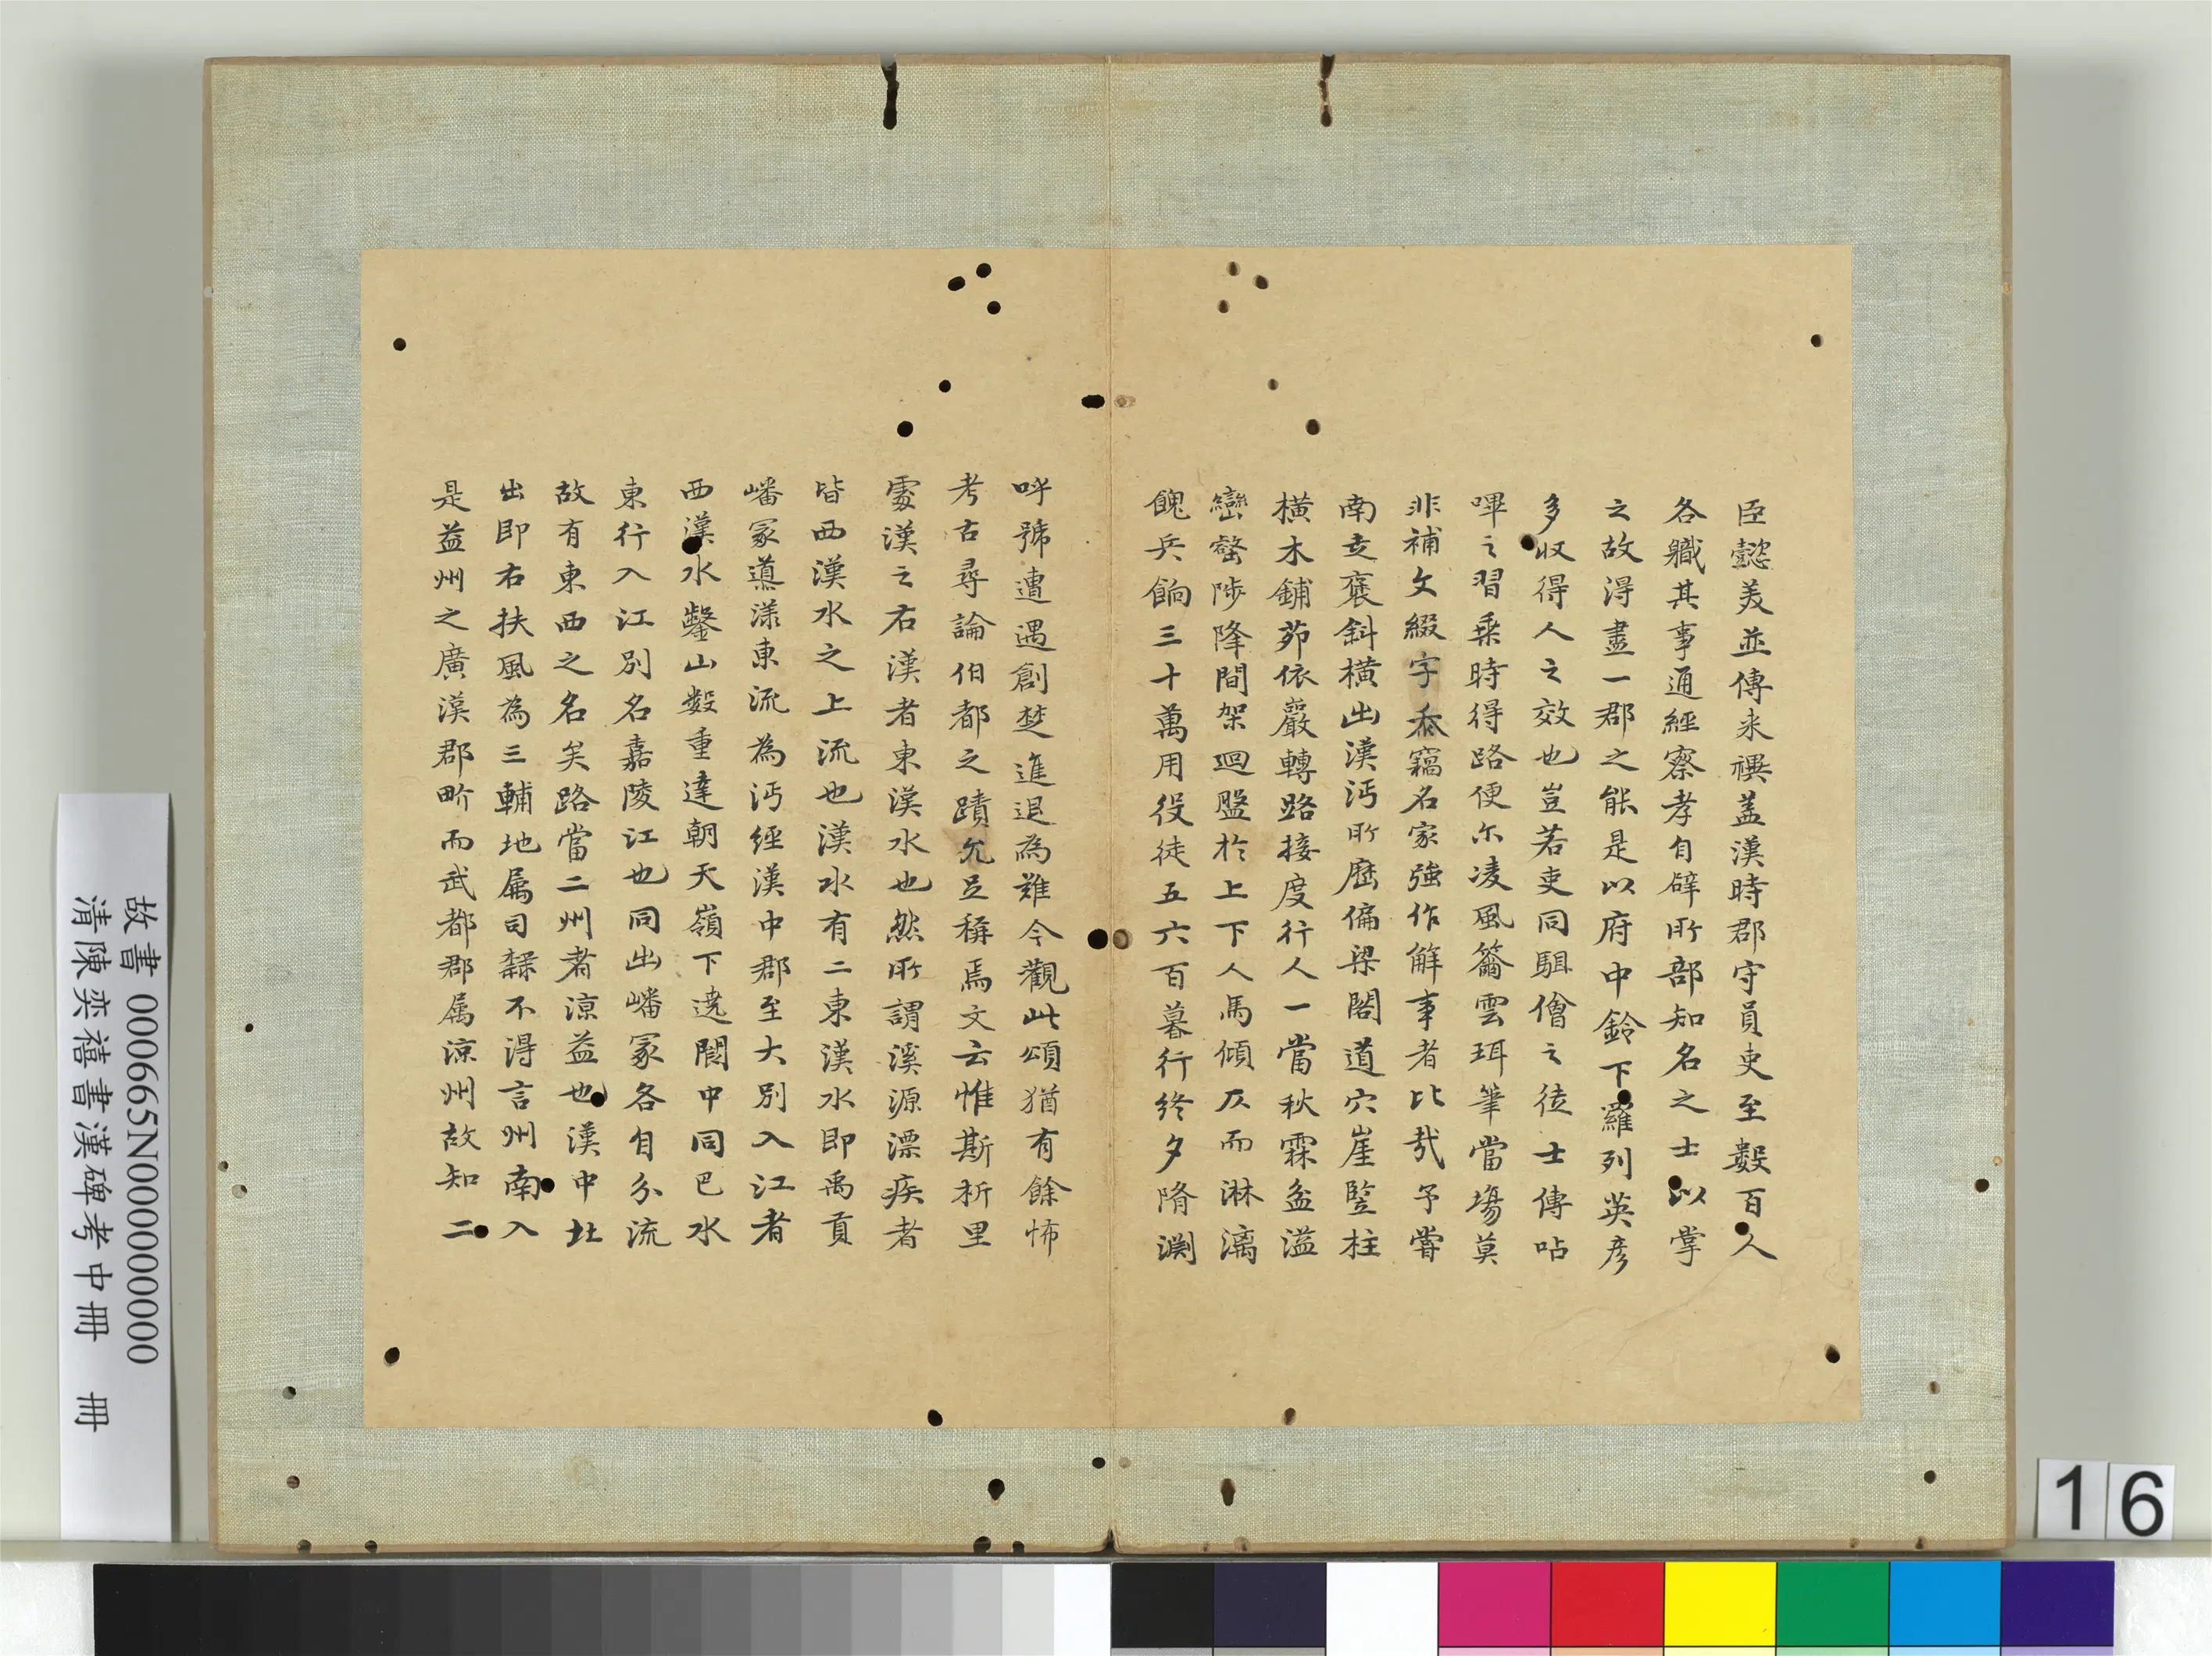 臣懿美並傳來禩盖漢時郡守員吏至數百人
各職其事通經察孝自辟所部知名之士以掌
之故得盡一郡之能是以府中鈴下羅列英彦
多収得人之效也豈若吏同駔儈之徒士傳呫
嗶之習乗時得路便尓凌風籋雲珥筆當塲莫
非補文綴字忝竊名家強作解事者比㢤予嘗
南走褒斜橫出漢沔所歷偏梁閣道穴崖竪柱
橫木鋪茆依巖轉路接度行人一當秋霖盆溢
巒壑陟降間架迴盤於上下人馬傾仄而淋漓
餽兵餉三十萬用役徒五六百暮行終夕隋渕
呼號遭遇創楚進退為難今觀此頌猶有餘怖
考古尋論伯都之蹟允足稱焉文云惟斯析里
處漢之右漢者東漢水也然所謂溪源漂疾者
皆西漢水之上流也漢水有二東漢水即禹貢
嶓冢導漾東流為沔經漢中郡至大別入江者
西漢水鑿山數重達朝天嶺下遶閬中同巴水
東行入江別名嘉陵江也同出嶓冢各自分流
故有東西之名矣路當二州者涼益也漢中北
出即右扶風為三輔地属司隸不得言州南入
是益州之廣漢郡畍而武都郡属涼州故知二
故書 000665N000000000
清陳奕禧書漢碑考中冊 冊
16